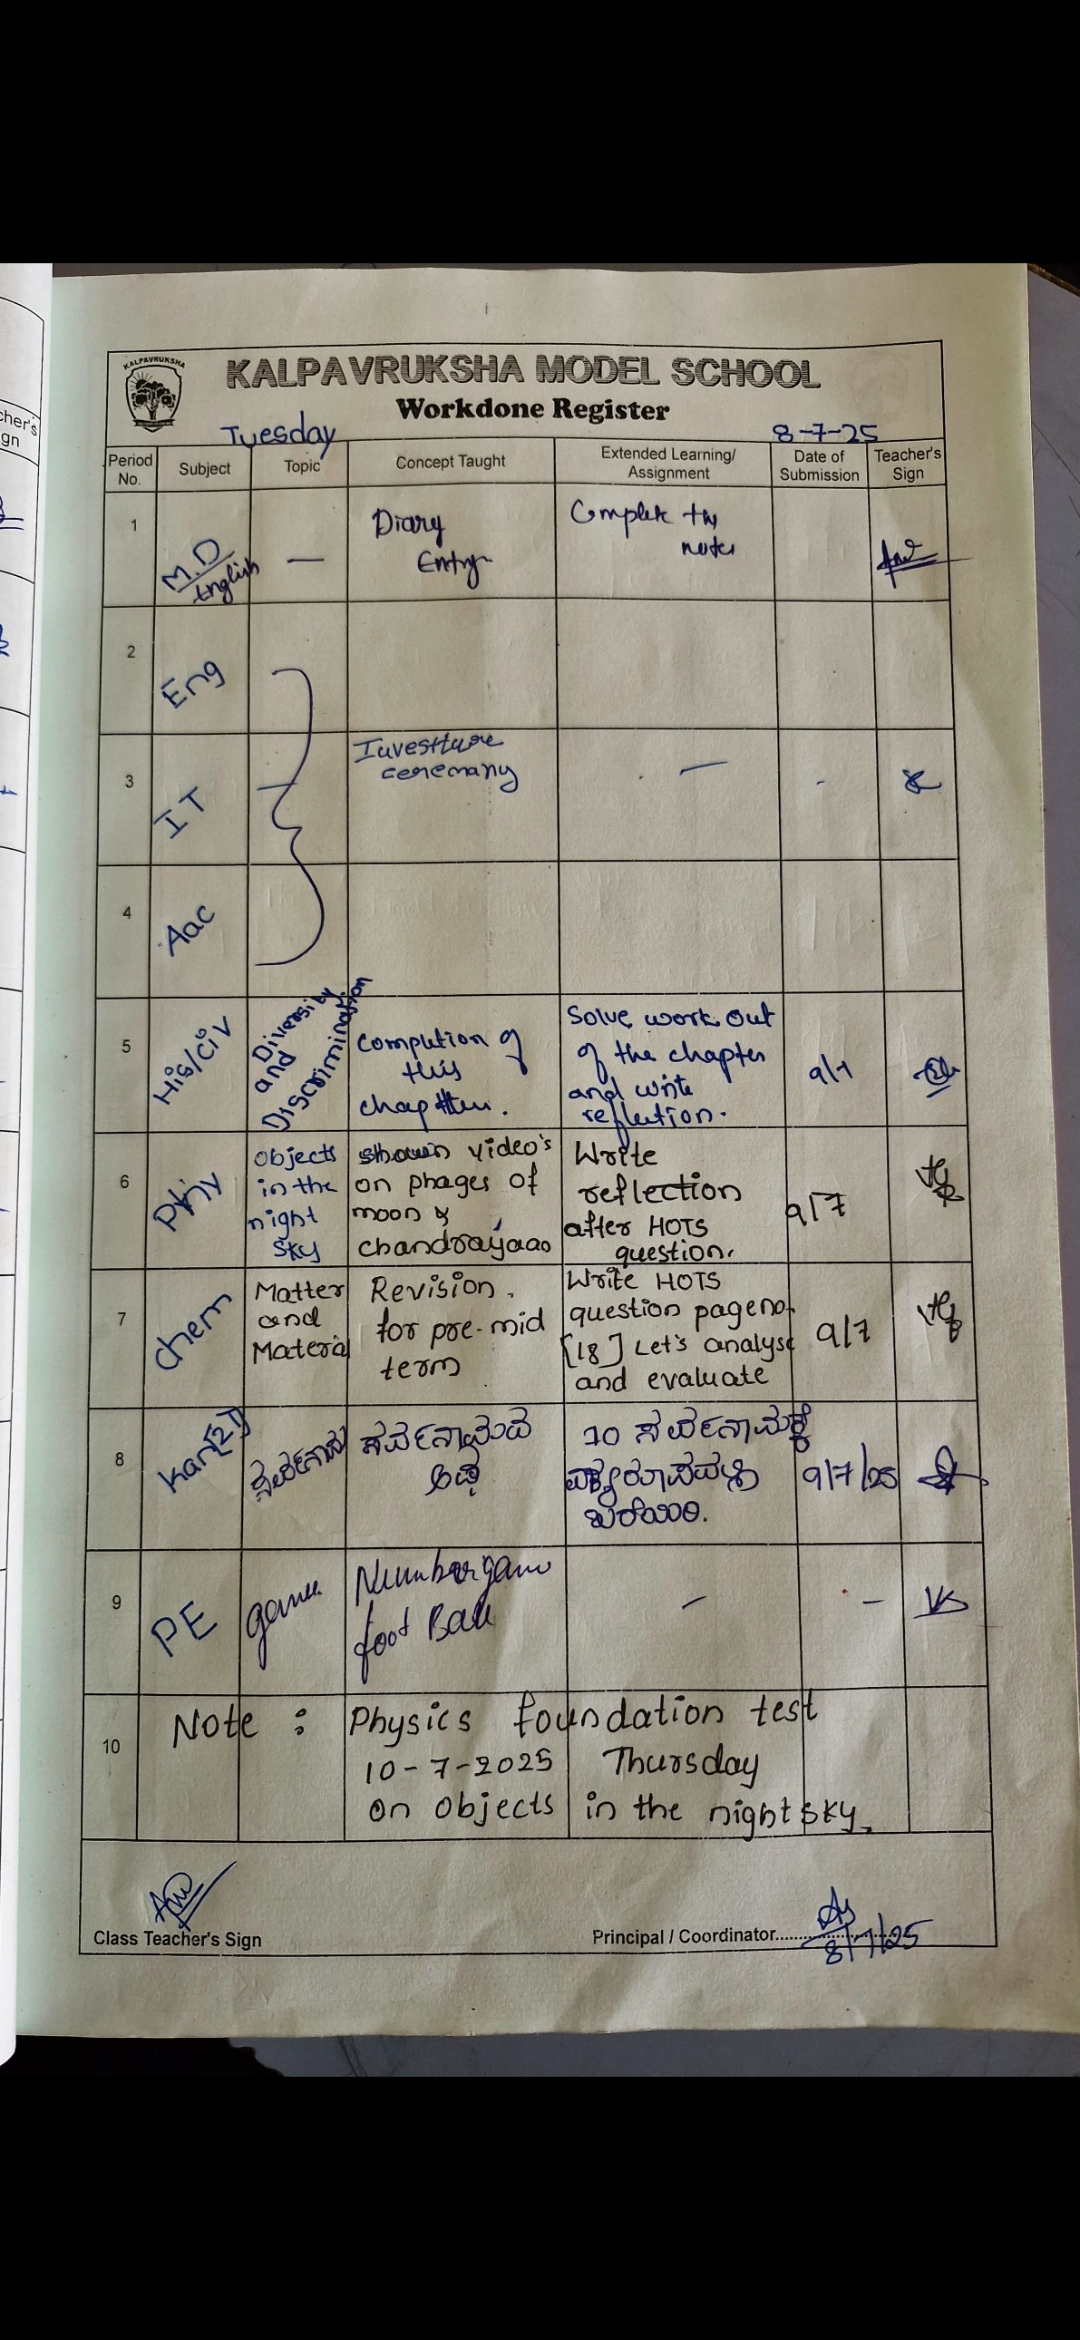 KALPAVRUKSHA
KALPAVRUKSHA MODEL SCHOOL
Workdone Register
Tuesday 8-7-25
Period No. Subject Topic Concept Taught Extended Learning/ Assignment Date of Submission Teacher's Sign
1 M.D English — Diary Entry Complete the notes
2 Eng
3 IT Investiture ceremany — -
4 Aac
5 His/Civ Diversity and Discrimination Completion of this chapter. Solve work out of the chapter and write reflection. 9/7
6 Phy Objects in the night sky shown video's on phages of moon & chandrayaan Write reflection after HOTS question. 9/7
7 Chem Matter and Material Revision. for pre-mid term Write HOTS question pageno. [18] Let's analyse and evaluate 9/7
8 Kan[2] ಸರ್ವನಾಮ ಸರ್ವನಾಮದ 10 ಸರ್ವನಾಮಕ್ಕೆ ಬರೆಯಿರಿ. 9/7/25
9 PE game Foot Ball — —
10 Note : Physics foundation test
10-7-2025 Thursday
on objects in the night sky.
Class Teacher's Sign Principal / Coordinator........ 8/7/25
cher's
gn